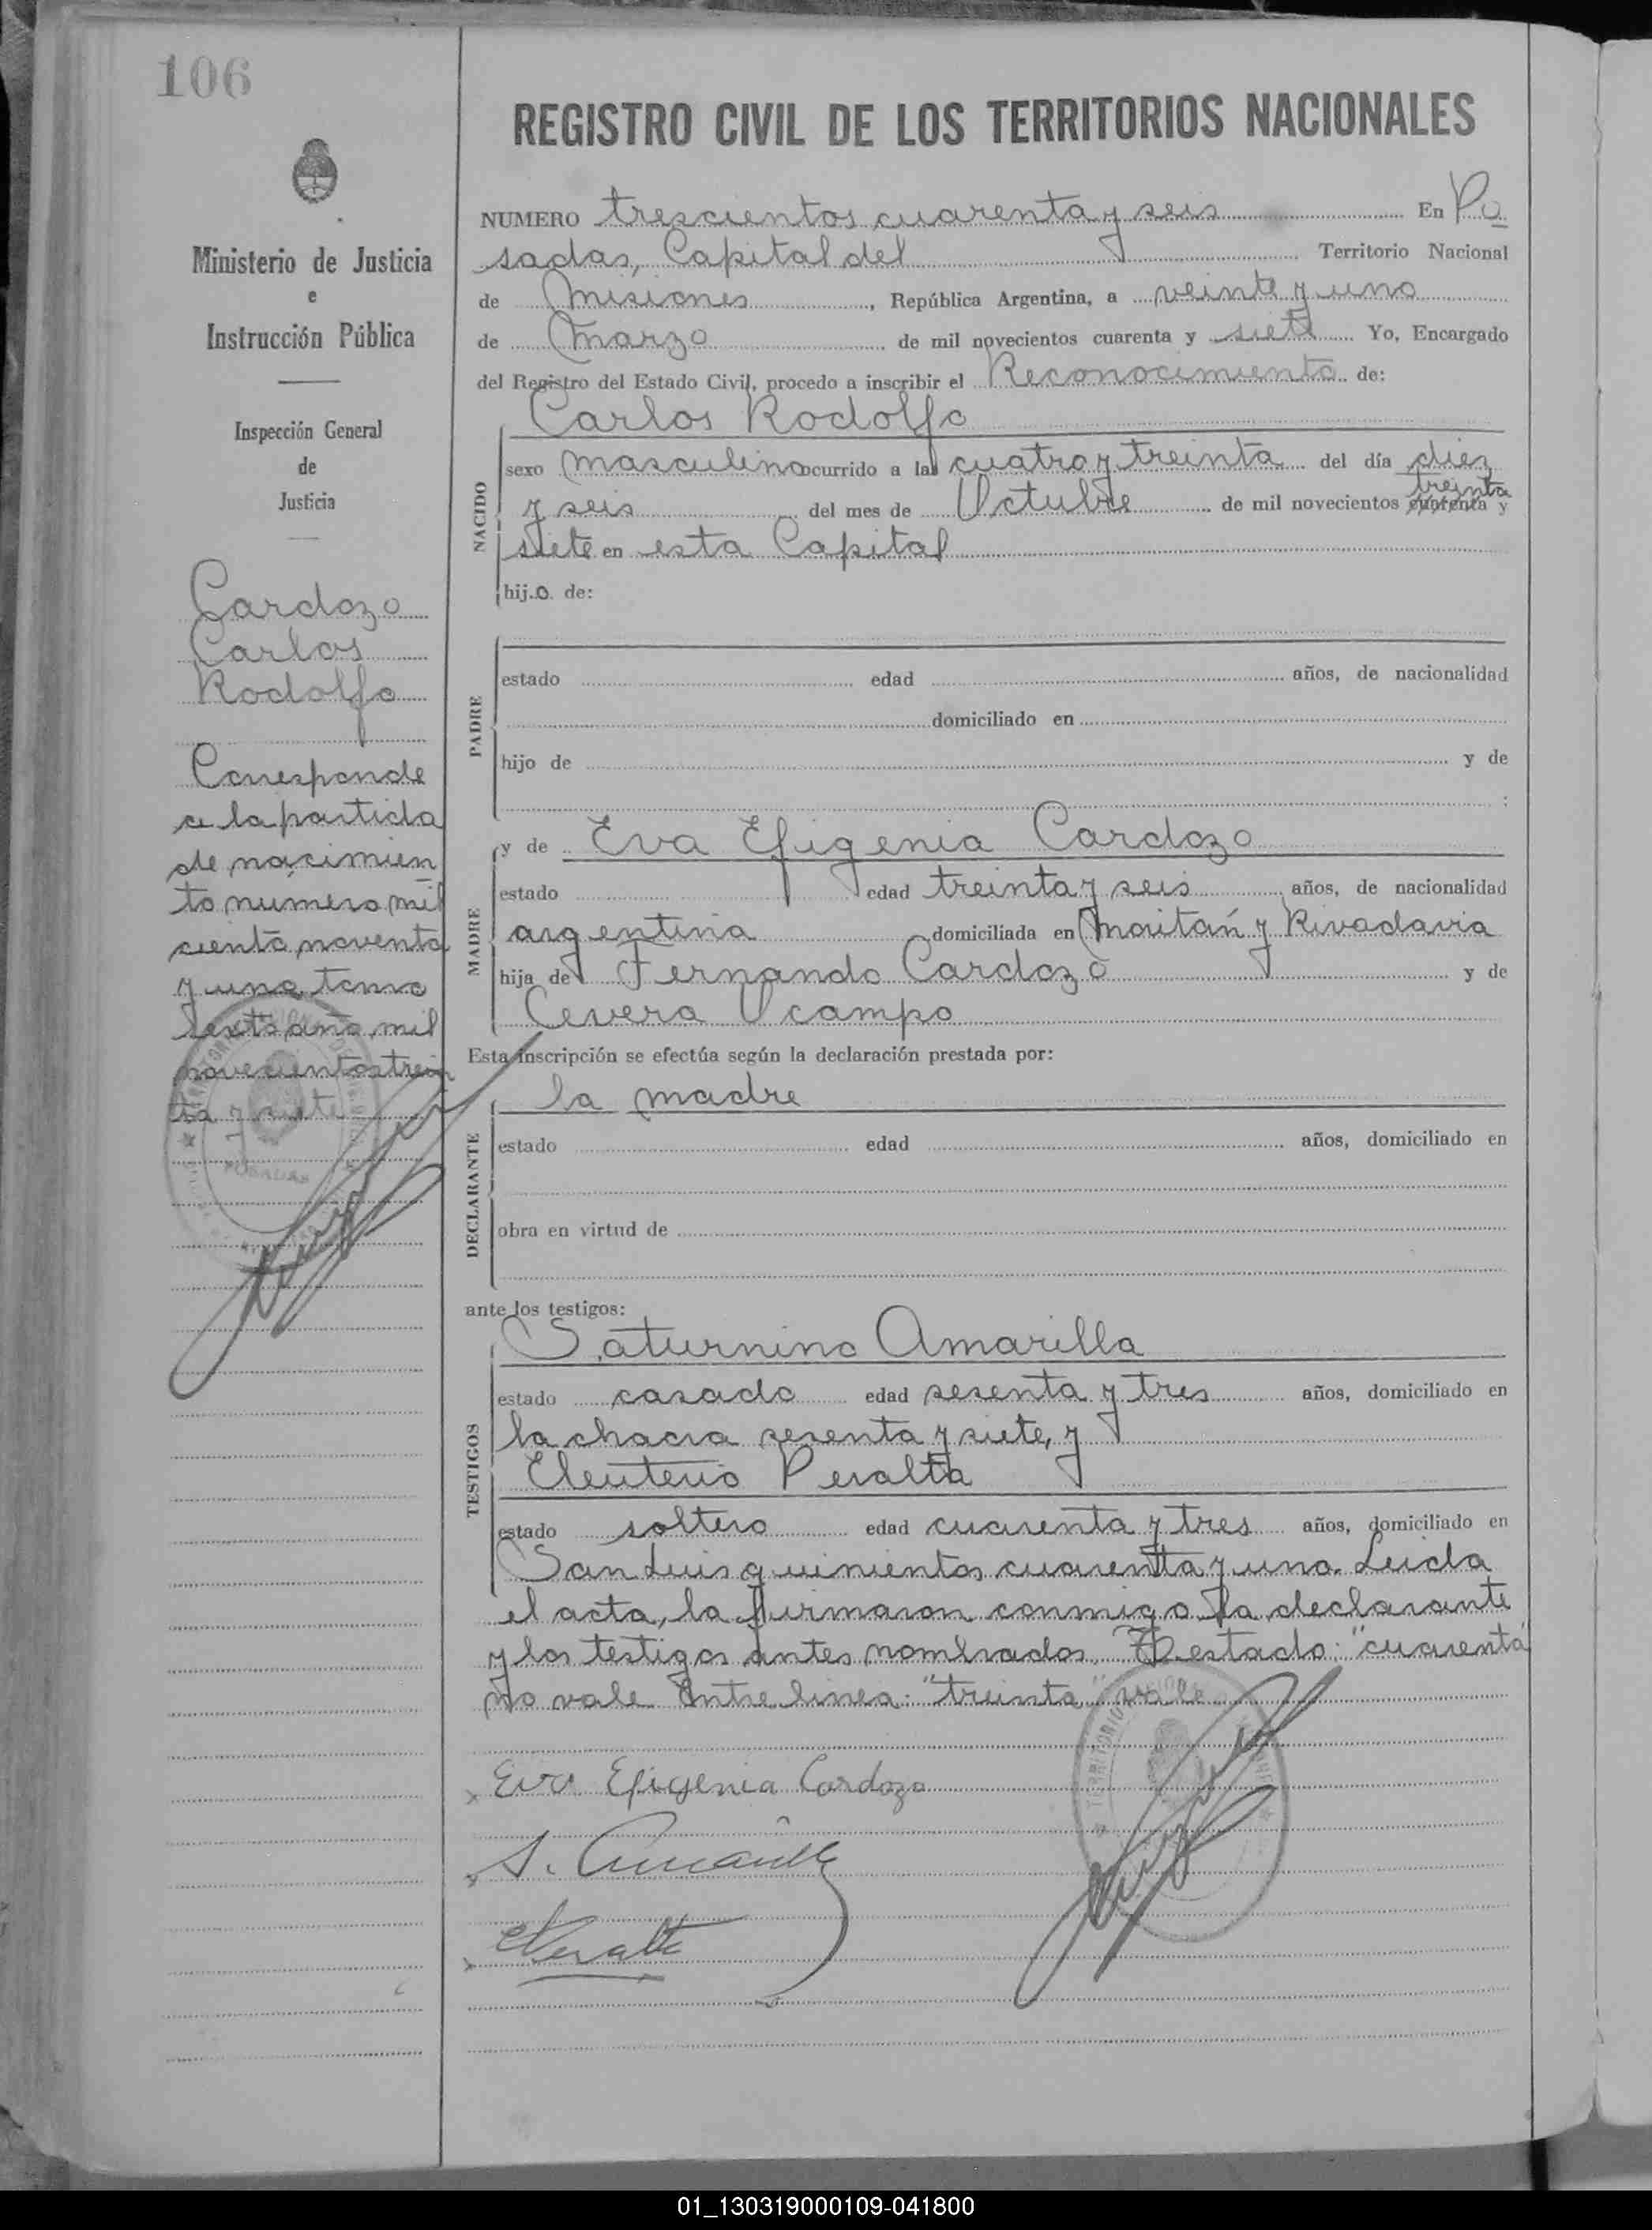 106
Ministerio de Justicia
e
Instrucción Pública
Inspección General
de
Justicia
Cardozo
Carlos
Rodolfo
Corresponde
a la partida
de nacimien
to numero mil
ciento noventa
y uno tomo
sexto año mil
novecientos trein
ta y siete
POSADAS
REGISTRO CIVIL DE LOS TERRITORIOS NACIONALES
NUMERO trescientos cuarenta y seis En Po
sadas, Capital del Territorio Nacional
de Misiones, República Argentina, a veinte y uno
de Marzo de mil novecientos cuarenta y siete Yo, Encargado
del Registro del Estado Civil, procedo a inscribir el Reconocimiento de:
Carlos Rodolfo
NACIDO
sexo masculino ocurrido a las cuatro y treinta del día diez
treinta
y seis del mes de Octubre de mil novecientos cuarenta y
siete en esta Capital
hijo de:
PADRE
estado edad años, de nacionalidad
domiciliado en
hijo de y de
:
MADRE
y de Eva Efigenia Cardozo
estado edad treinta y seis años, de nacionalidad
argentina domiciliada en Maitán y Rivadavia
hija de Fernando Cardozo y de
Cevera Ocampo
Esta inscripción se efectúa según la declaración prestada por:
DECLARANTE
la madre
estado edad años, domiciliado en
obra en virtud de
ante los testigos:
TESTIGOS
Saturnino Amarilla
estado casado edad sesenta y tres años, domiciliado en
la chacra sesenta y siete, y
Eleuterio Peralta
estado soltero edad cuarenta y tres años, domiciliado en
San Luis quinientos cuarenta y uno. Leida
el acta, la firmaron conmigo la declarante
y los testigos antes nombrados. Testado: "cuarenta"
no vale Entre linea: "treinta" vale
x Eva Efigenia Cardozo
x S. Amarilla
x EPeralta
01_130319000109-041800